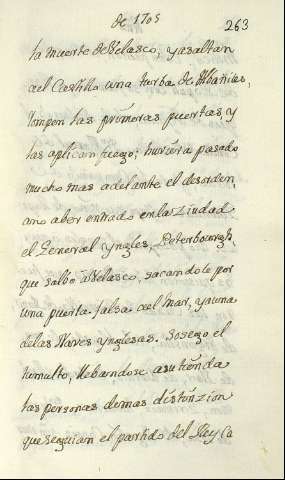 de 1705
263
la muerte de Velasco, y asaltan
ael Castillo una turba de Albañias,
rompen las primeras puertas, y
las aplican fuego; huviera pasado
mucho mas adelante el desorden,
ano aber entrado en la Ziudad
el General Yngles, Peterbourgh,
que salbo a Velasco, sacandole por
una puerta falsa ael mar, y a una
de las Naves Ynglesas. Sosego el
tumulto, llebandose a su tienda
las personas demas distinzion
que seguian el partido del Rey Ca